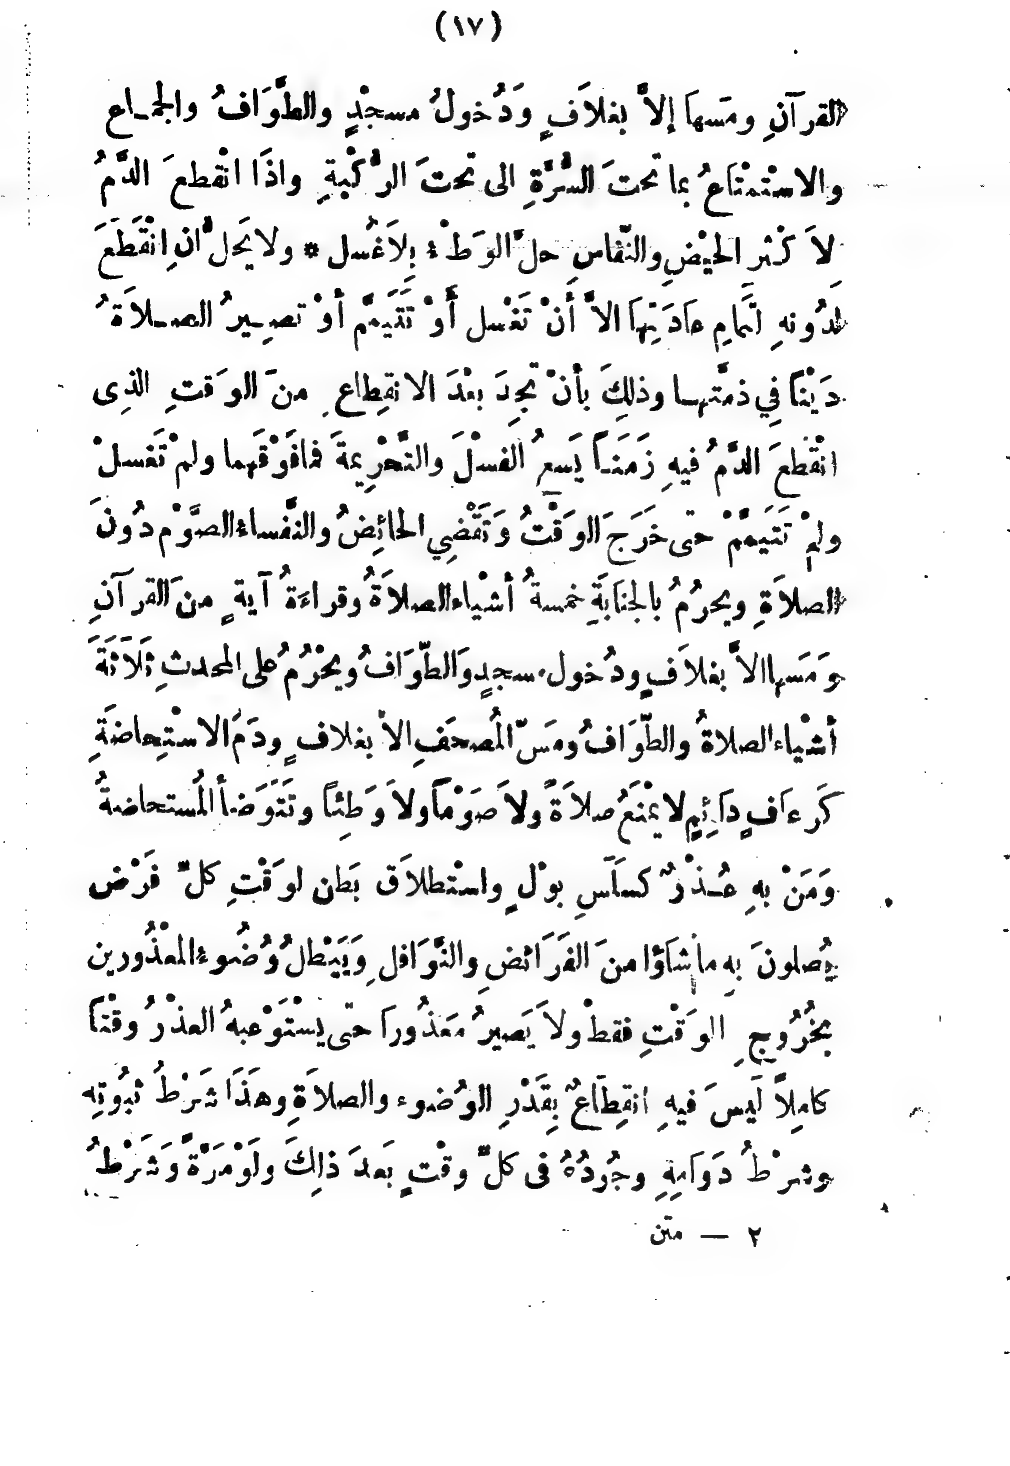 (١٧)
القرآنِ ومَسهَا إلاَّ بغلاَفٍ وَدُخولُ مسجدٍ والطَّوَافُ والجمـاع
والاسْتمْتَاعُ بما تحتَ السُّرَّةِ الى تحتَ الرُّكْبةِ واذَا انْقطعَ الدَّمُ
لاَ كْثر الحيْضِ والنّفاسِ حلَّ الوَطْء بِلاَغُسل * ولا يَحلُّ انِ انْقَطَعَ
لدُونهِ لتَمامِ عَادَتِهَا الاَّ أَنْ تَغْسل أَوْ تَتَيمَّم أوْ تصِـيرُ الصـلاَةُ
دَيْنًا فِي ذمَّتهـا وذلِكَ بأنْ تَجِدَ بعْدَ الانقِطاعِ منَ الوَقتِ الذِى
انْقَطعَ الدَّمُ فيهِ زَمَنـاً يَسعُ الغسْلَ والتَّحْرِيمةَ فمافَوْقَهما ولمْ تَغسلْ
ولمْ تَتَيمَّمْ حتى خَرَجَ الوَقْتُ وَتَقْضِي الحائِضُ والنَّفساء الصَّوْم دُونَ
الصلاَةِ ويحرُمُ بالجَنابَةِ خمسةُ أشْياء الصلاَةُ وقراءَةُ آيةٍ منَ القرآنِ
وَمَسها الاَّ بغلاَفٍ ودُخول مسجدٍ وَالطّوَافُ ويحْرُمُ على المحدثِ ثَلاَثَةَ
أشْياء الصلاةُ والطّوَافُ ومَسّ المُصحَفِ الاَّ بغلافٍ ودَمُ الاسْتِحاضَةِ
كَرعَافٍ دَائِمٍ لا يمْنَعُ صلاَةً ولاَ صَوْماً ولاَ وَطِئاً وتَتَوَضأُ المُستحاضةُ
وَمَنْ بهِ عُـذْرٌ كسلَسِ بوْلٍ واسْتطلاَق بَطن لوَقْتِ كلِّ فَرْض
يُصلونَ بهِ ماشَاؤا منَ الفَرَائضِ والنَّوَافلِ وَيَبْطلُ وُضُوءُ المعْذُورين
بخُرُوجِ الوَقْتِ فقطْ ولاَ يَصيرُ مَعَذُورًا حتّى يسْتوْعبهُ العذْرُ وقْتًا
كاملِاً لَيسَ فيهِ انقِطَاعٌ بِقَدْرِ الوُضوء والصلاَةِ وهَذَا شَرْطُ ثبُوتِه
وشرْطُ دَوَامِهِ وجُودُهُ فى كلِّ وقْتٍ بَعدَ ذلِكَ ولَوْ مَرَّةً وَشَرْطُ
٢ — متن